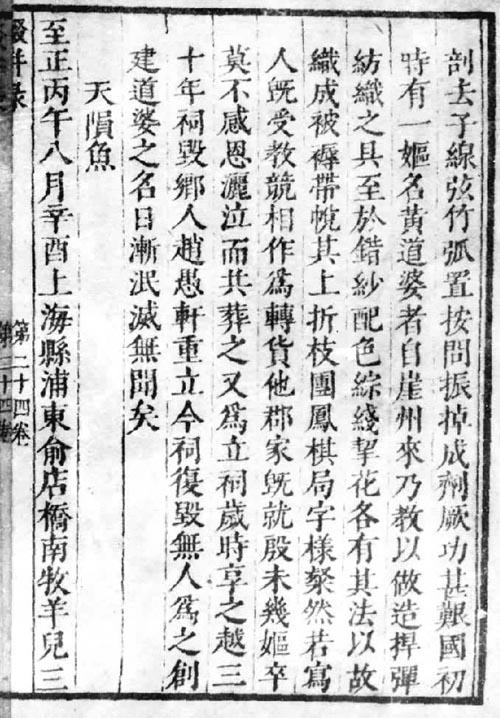 剖去子線弦竹弧置按間振掉成劑厥功甚艱國初
時有一嫗名黃道婆者自崖州來乃教以做造捍彈
紡織之具至於錯紗配色綜綫挈花各有其法以故
織成被褥帶帨其上折枝團鳳棋局字様粲然若寫
人旣受教競相作爲轉貨他郡家旣就殷未幾嫗卒
莫不感恩灑泣而共葬之又爲立祠歲時享之越三
十年祠毀鄉人趙愚軒重立今祠復毀無人爲之創
建道婆之名日漸泯滅無聞矣
天隕魚
至正丙午八月辛酉上海縣浦東俞店橋南牧羊兒三
第二十四卷